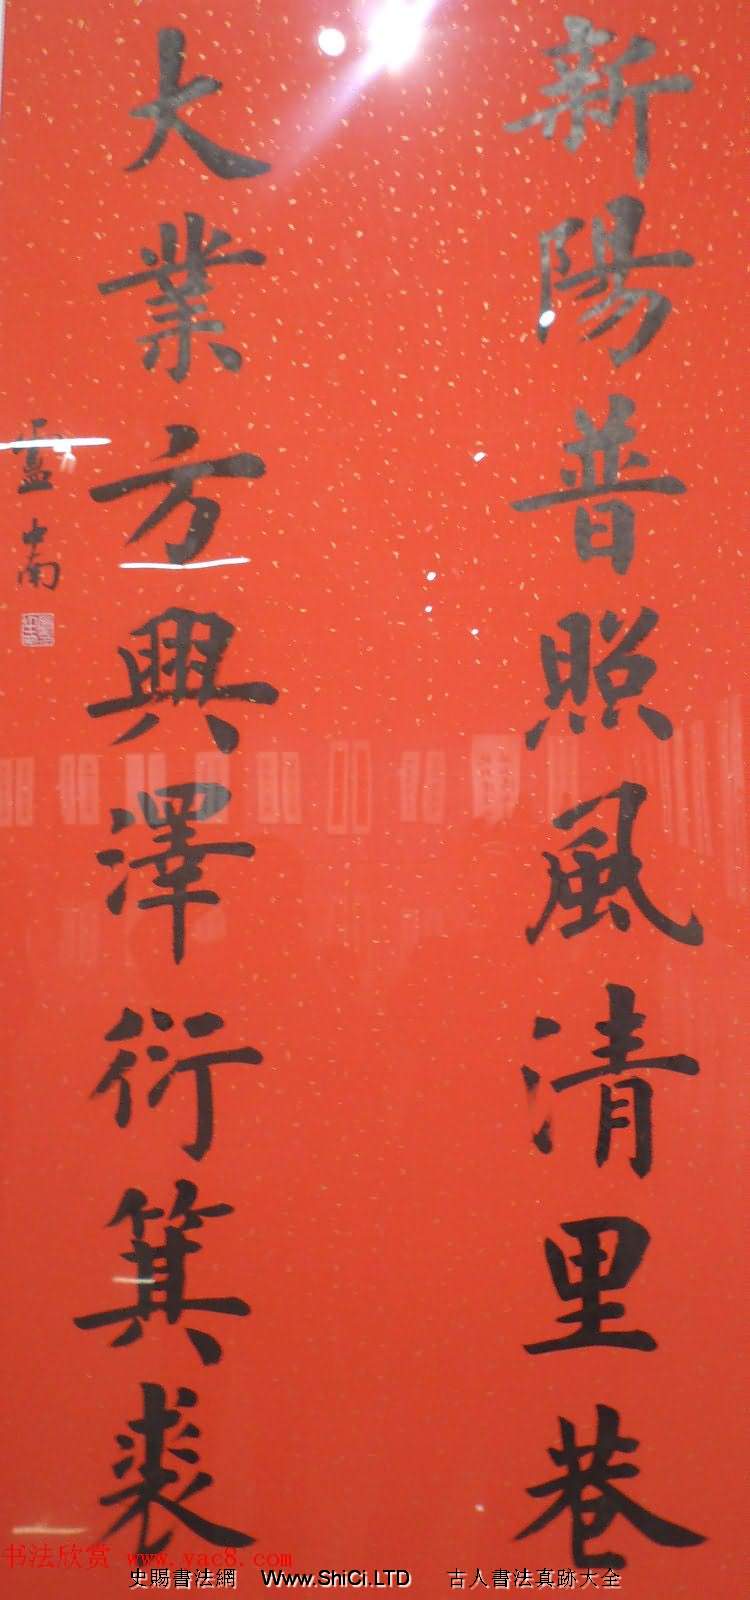 新陽普照風清里巷
大業方興澤衍箕裘
盧中南
书法欣赏 www.yac8.com
史賜書法網 Www.ShiCi.LTD 古人書法真跡大全